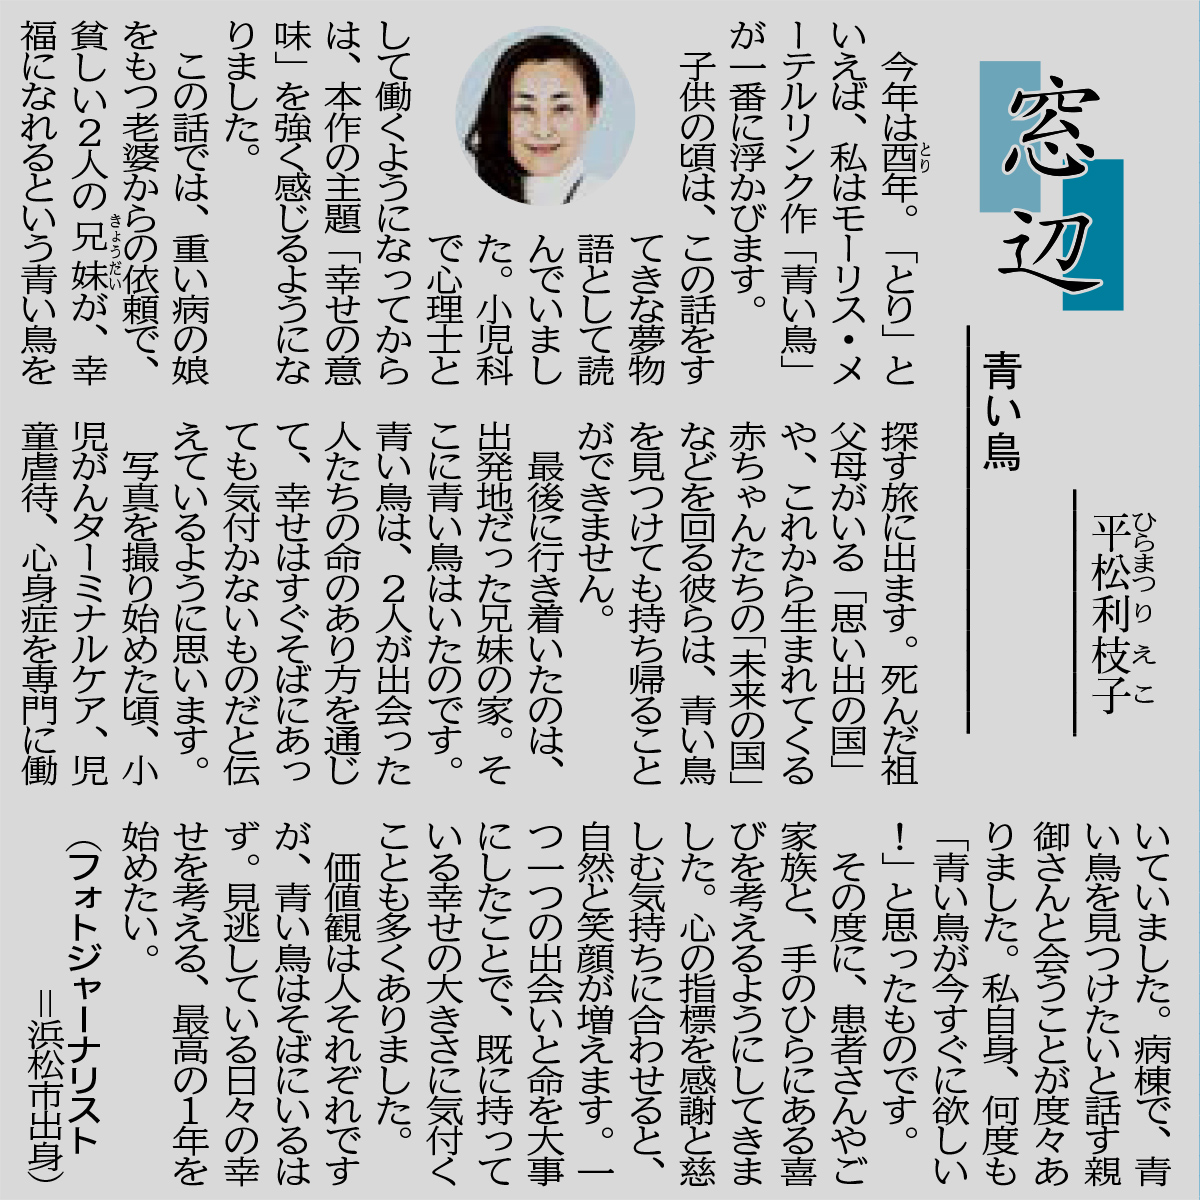 窓辺
青い鳥
平松利枝子
ひらまつりえこ
今年は酉年。「とり」と
とり
いえば、私はモーリス・メ
ーテルリンク作「青い鳥」
が一番に浮かびます。
子供の頃は、この話をす
てきな夢物
語として読
んでいまし
た。小児科
で心理士と
して働くようになってから
は、本作の主題「幸せの意
味」を強く感じるようにな
りました。
この話では、重い病の娘
をもつ老婆からの依頼で、
貧しい2人の兄妹が、幸
きょうだい
福になれるという青い鳥を
探す旅に出ます。死んだ祖
父母がいる「思い出の国」
や、これから生まれてくる
赤ちゃんたちの「未来の国」
などを回る彼らは、青い鳥
を見つけても持ち帰ること
ができません。
最後に行き着いたのは、
出発地だった兄妹の家。そ
こに青い鳥はいたのです。
青い鳥は、2人が出会った
人たちの命のあり方を通じ
て、幸せはすぐそばにあっ
ても気付かないものだと伝
えているように思います。
写真を撮り始めた頃、小
児がんターミナルケア、児
童虐待、心身症を専門に働
いていました。病棟で、青
い鳥を見つけたいと話す親
御さんと会うことが度々あ
りました。私自身、何度も
「青い鳥が今すぐに欲しい
!」と思ったものです。
その度に、患者さんやご
家族と、手のひらにある喜
びを考えるようにしてきま
した。心の指標を感謝と慈
しむ気持ちに合わせると、
自然と笑顔が増えます。一
つ一つの出会いと命を大事
にしたことで、既に持って
いる幸せの大きさに気付く
ことも多くありました。
価値観は人それぞれです
が、青い鳥はそばにいるは
ず。見逃している日々の幸
せを考える、最高の1年を
始めたい。
(フォトジャーナリスト
=浜松市出身)